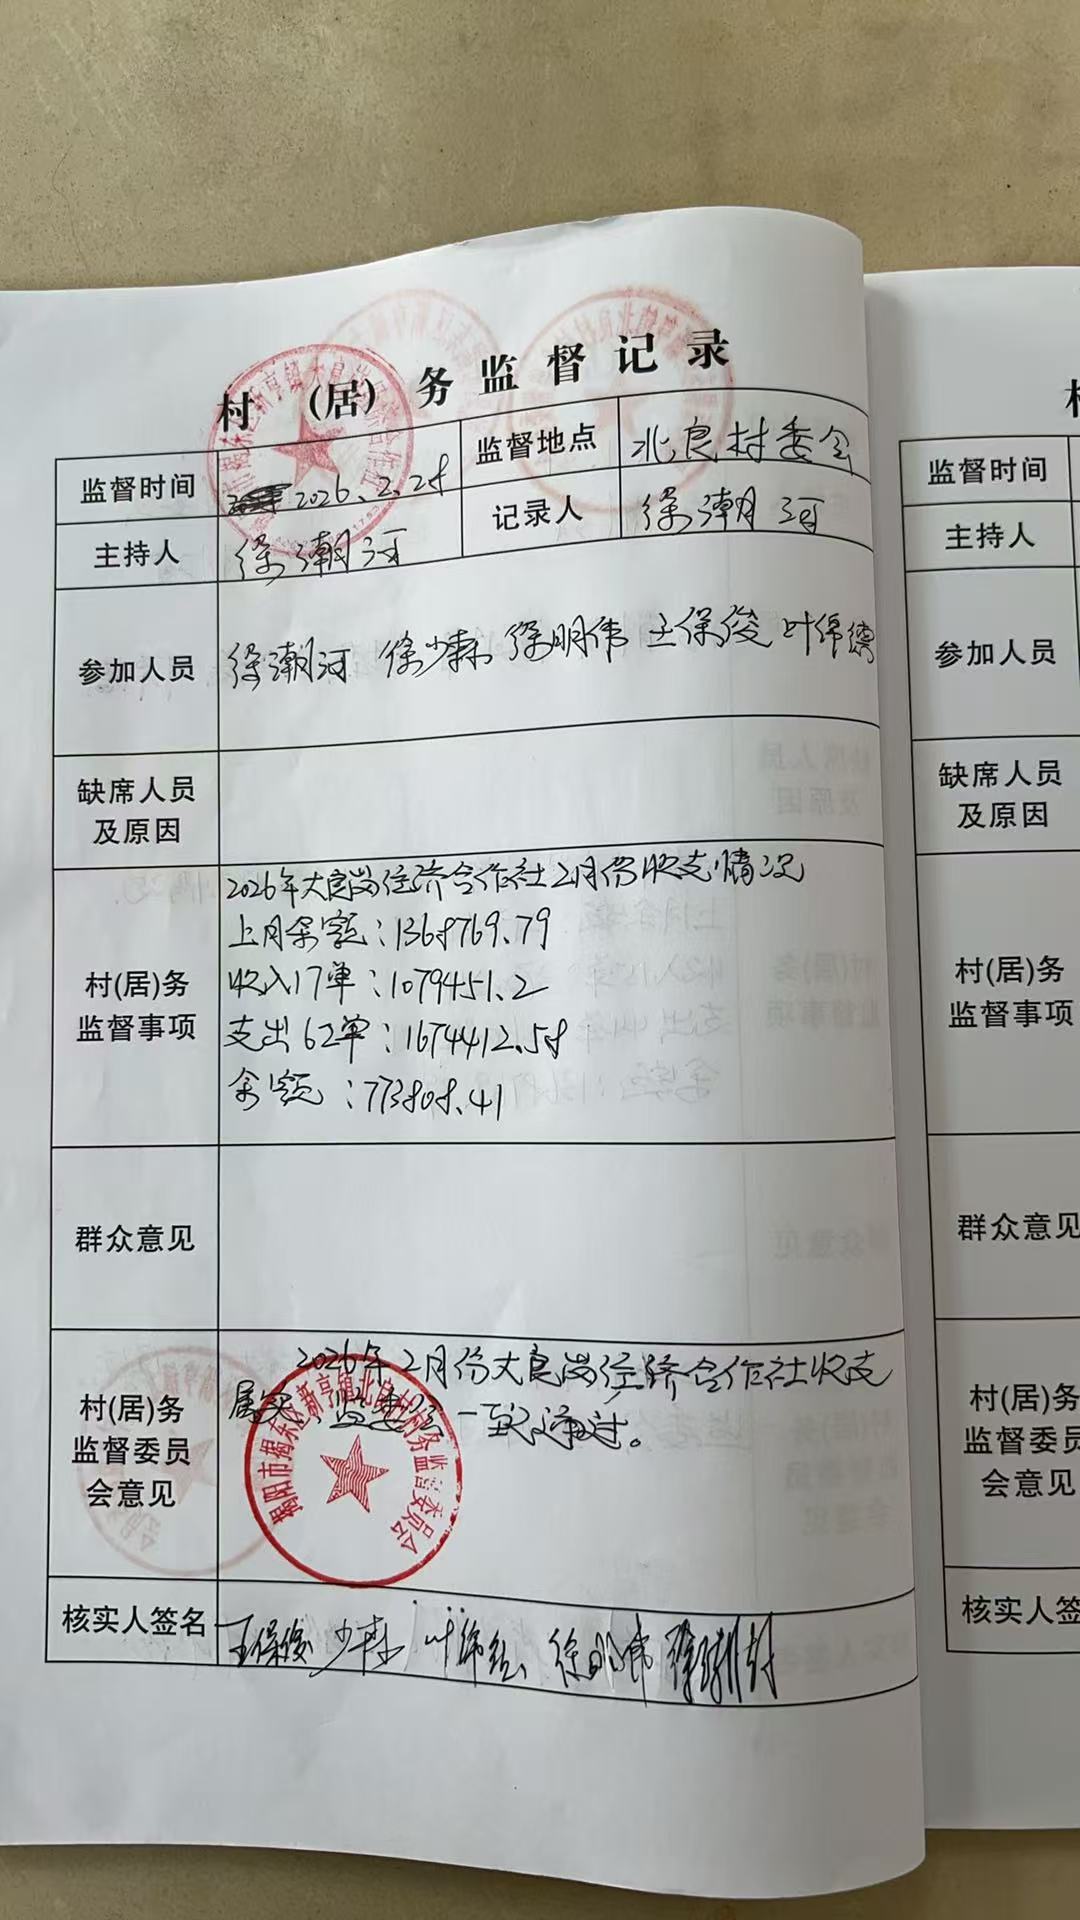 村 (居) 务 监 督 记 录
监督时间 2026.2.28 监督地点 北良村委会
主持人 徐潮河 记录人 徐潮河
参加人员 徐潮河 徐少森 徐明伟 王保俊 叶绵
缺席人员
及原因
村(居)务
监督事项
2026年大良岗经济合作社2月份收支情况
上月余额:1368769.79
收入17单:1079451.2
支出62单:1674412.58
余额:773808.41
群众意见
村(居)务
监督委员
会意见
2026年2月份大良岗经济合作社收支
属实,监委会一致通过。
揭阳市揭东区新亨镇北良村村务监督委员会
核实人签名 王保俊 少森 徐明伟
监督时间
主持人
参加人员
缺席人员
及原因
村(居)务
监督事项
群众意见
村(居)务
监督委员
会意见
核实人签